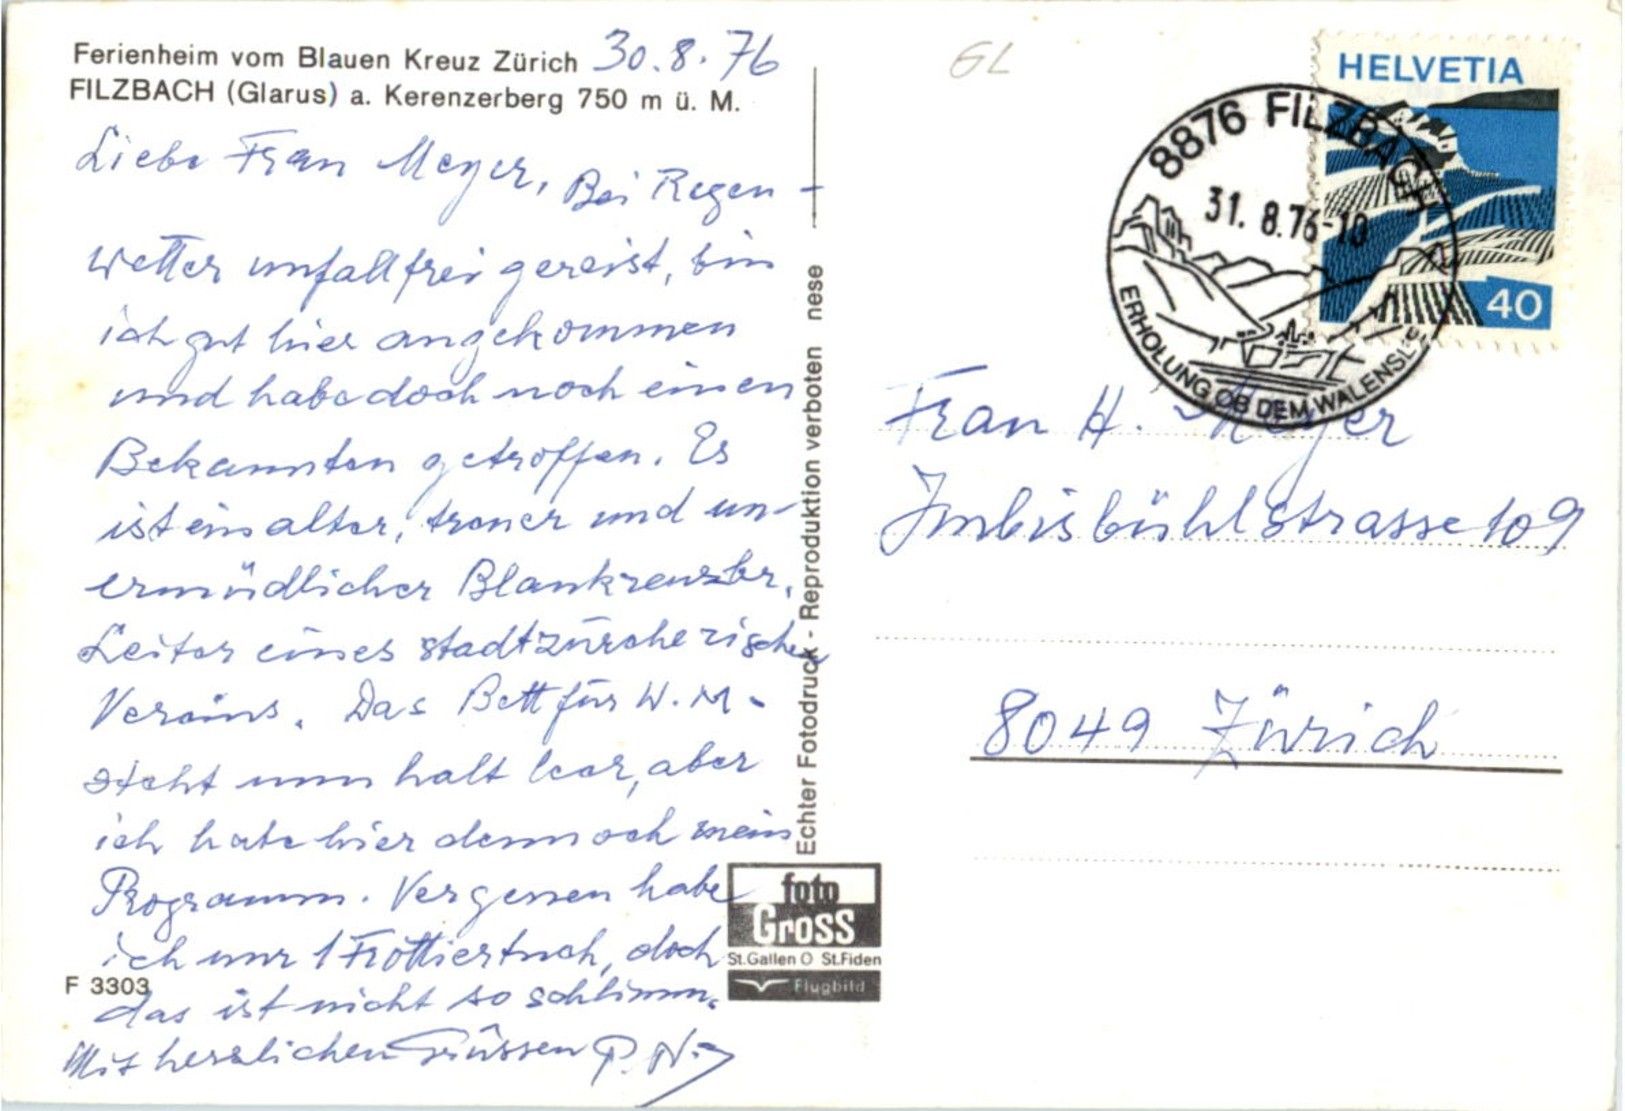 Ferienheim vom Blauen Kreuz Zürich 30.8.76
FILZBACH (Glarus) a. Kerenzerberg 750 m ü. M.
Liebe Frau Meyer, Bei Regen-
wetter unfallfrei gereist, bin
ich gut hier angekommen
und habe doch noch einen
Bekannten getroffen. Es
ist ein alter, treuer und un-
ermüdlicher Blaukreuzler,
Leiter eines stadtzürcherischen
Vereins. Das Bett für W. M.
steht nun halt leer, aber
ich habe hier dennoch mein
Programm. Vergessen habe
ich nur 1 Frottiertuch, doch
das ist nicht so schlimm.
Mit herzlichen Grüssen P.
F 3303
Echter Fotodruck - Reproduktion verboten nese
foto
Gross
St.Gallen O St.Fiden
Flugbild
GL
HELVETIA
40
8876 FILZBACH
31. 8.76-10
ERHOLUNG OB DEM WALENSEE
Frau H. Meyer
Imbisbühlstrasse 109
8049 Zürich